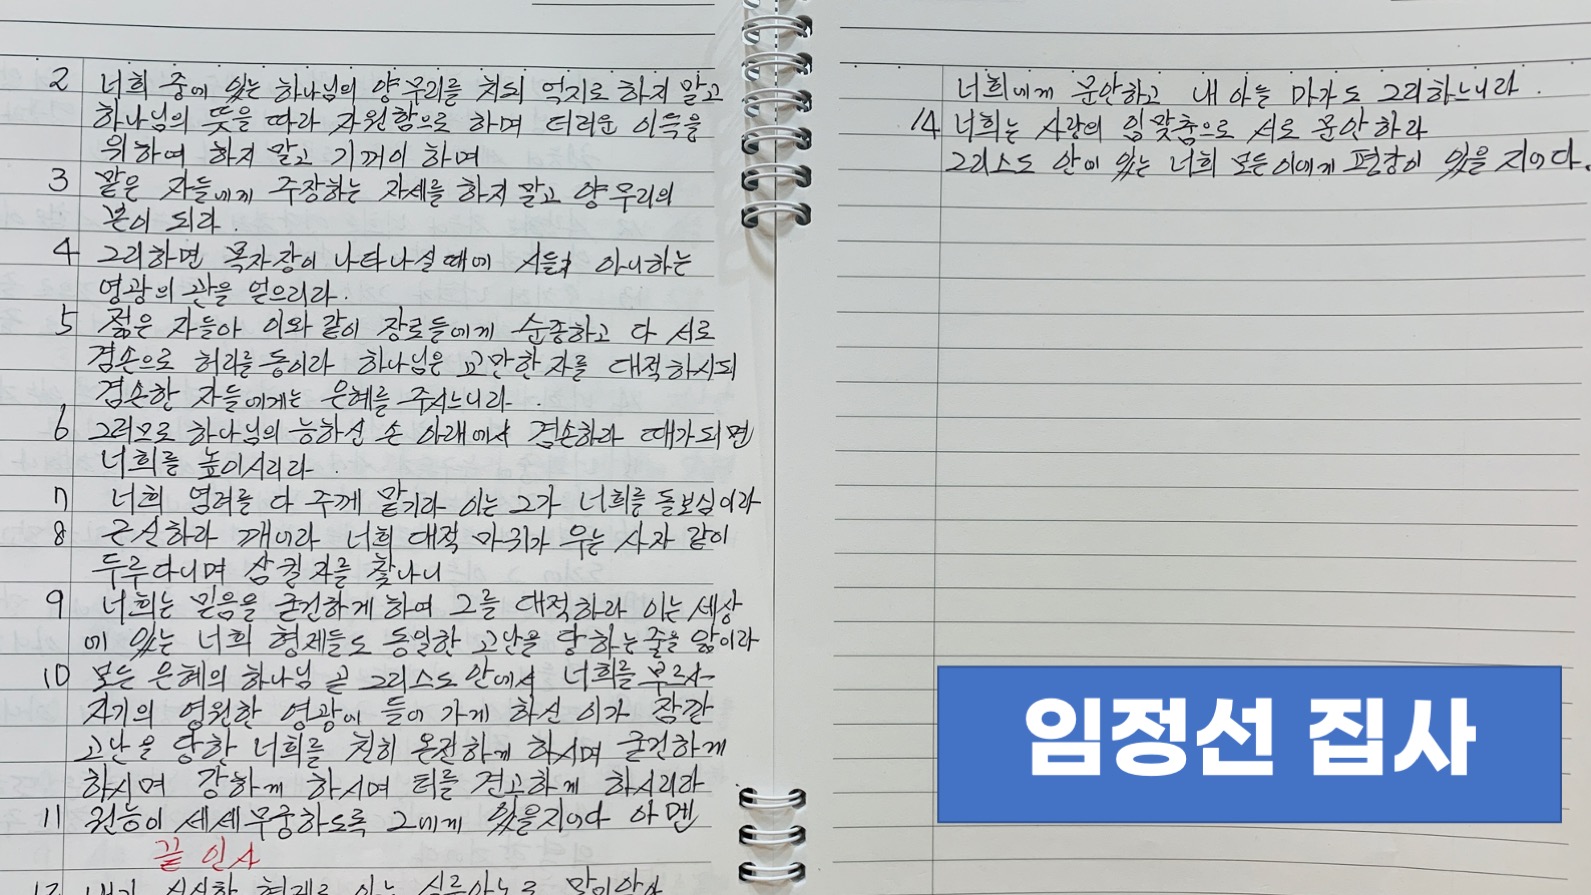 2 너희 중에 있는 하나님의 양 무리를 치되 억지로 하지 말고
하나님의 뜻을 따라 자원함으로 하며 더러운 이득을
위하여 하지 말고 기꺼이 하며
3 맡은 자들에게 주장하는 자세를 하지 말고 양 무리의
본이 되라.
4 그리하면 목자장이 나타나실 때에 시들지 아니하는
영광의 관을 얻으리라.
5 젊은 자들아 이와 같이 장로들에게 순종하고 다 서로
겸손으로 허리를 동이라 하나님은 교만한 자를 대적하시되
겸손한 자들에게는 은혜를 주시느니라.
6 그러므로 하나님의 능하신 손 아래에서 겸손하라 때가 되면
너희를 높이시리라.
7 너희 염려를 다 주께 맡기라 이는 그가 너희를 돌보심이라
8 근신하라 깨어라 너희 대적 마귀가 우는 사자 같이
두루 다니며 삼킬 자를 찾나니
9 너희는 믿음을 굳건하게 하여 그를 대적하라 이는 세상
에 있는 너희 형제들도 동일한 고난을 당하는 줄을 앎이라
10 모든 은혜의 하나님 곧 그리스도 안에서 너희를 부르사
자기의 영원한 영광에 들어가게 하신 이가 잠깐
고난을 당한 너희를 친히 온전하게 하시며 굳건하게
하시며 강하게 하시며 터를 견고하게 하시리라
11 권능이 세세무궁하도록 그에게 있을지어다 아멘
끝 인사
12 내가 신실한 형제로 아는 실루아노로 말미암아
너희에게 문안하고 내 아들 마가도 그리하느니라.
14 너희는 사랑의 입맞춤으로 서로 문안하라
그리스도 안에 있는 너희 모든 이에게 평강이 있을 지어다.
임정선 집사